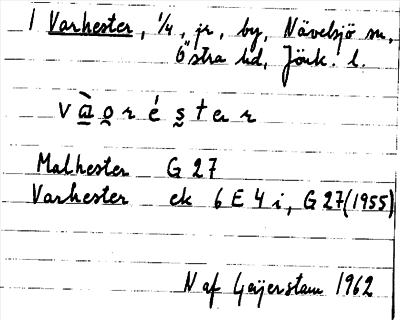 1 Varhester, 1/4, jr, by, Nävelsjö sn,
Östra hd, Jönk. l.
v à̲ o̲ r é s̲ t e r
Malhester G 27
Varhester ek 6 E 4 i, G 27 (1955)
N af Geijerstam 1962